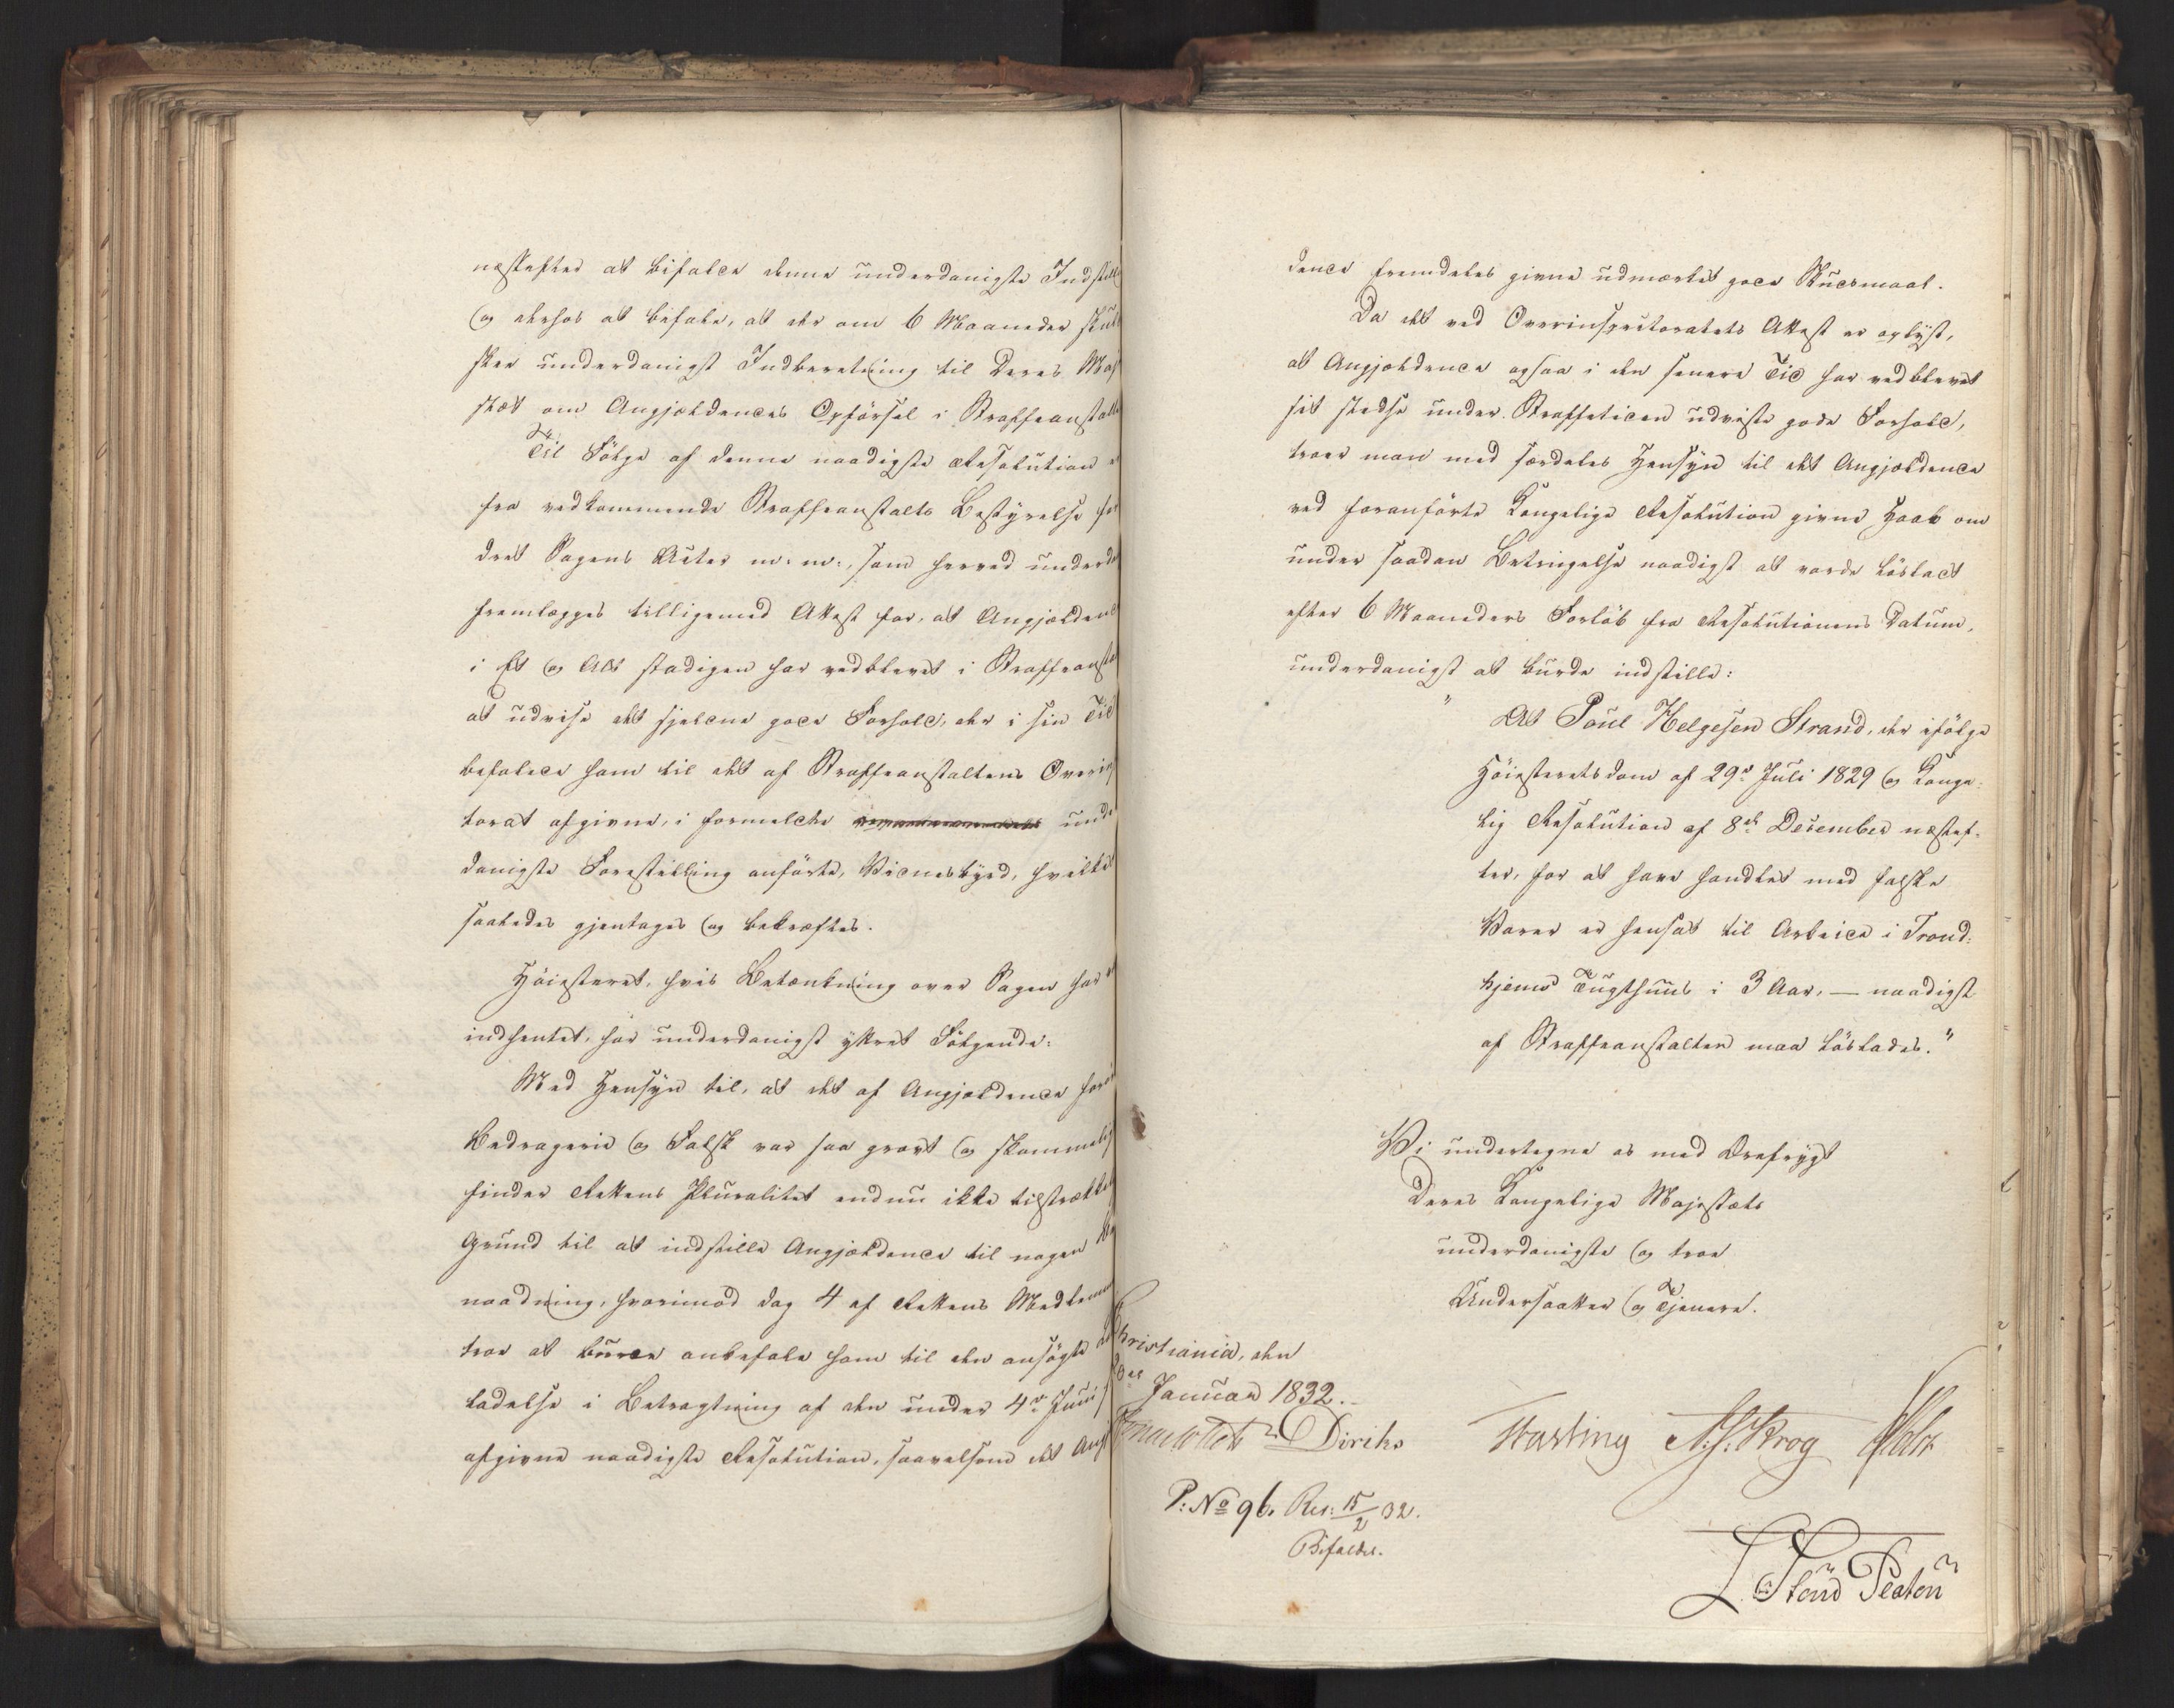 næstefter at bifalde denne underdanigste Indstill
og derhos at befale, at der om 6 Maaneder skul
skee underdanigst Indberetning til Deres Maj
stæt om Angjældendes Opførsel i Straffeanstalt
Til Følge af denne naadigste Resolution
fra vedkommende Straffeanstalts Bestyrelse
dret Sagens Acter m: m:, som herved underd
fremlægges tilligemed Attest for, at Angjælden
i Et og Alt stadigen har vedblevet i Straffeansta
at udvise det sjeldne gode Forhold, der i sin Tid
befalede ham til det af Straffeanstaltens Overin
torat afgivne, i formeldte und
danigste Forestilling anførte, Vidnesbyrd, hvilket
saaledes gjentages og bekræftes.
Høiesteret, hvis Betænkning over Sagen har
indhentet, har underdanigst yttret Følgende:
Med Hensyn til, at det af Angjældende
Bedragerie og Falsk var saa grovt og skammelig
finder Rettens Pluralitet endnu ikke tilstrækkel
Grund til at indstille Angjældende til nogen
naadning, hvorimod dog 4 af Rettens Medlemm
troe at burde anbefale ham til den ansøgte
ladelse i Betragtning af den under 4de Juni
afgivne naadigste Resolution, saavelsom det Angj
dende fremdeles givne udmærket gode Skudsmaal.
Da det ved Overinspectoratets Attest er oplyst,
at Angjældende ogsaa i den senere Tid har vedblevet
sit stedse under Straffetiden udviste gode Forhold,
troer man med særdeles Hensyn til det Angjældende
ved foranførte Kongelige Resolution givne Haab om
under saadan Betingelse naadigst at vorde løsladt
efter 6 Maaneders Forløb fra Resolutionens Datum,
underdanigst at burde indstille:
"At Poul Helgesen Strand, der ifølge
Høiesteretsdom af 29de Juli 1829 og Konge-
lig Resolution af 8de December næstef-
ter, for at have handlet med falske
Varer er hensat til Arbeide i Trond-
hjems Tugthuus i 3 Aar, — naadigst
af Straffeanstalten maa løslades."
Vi undertegne os med Ærefrygt
Deres Kongelige Majestæts
underdanigste og troe
Undersaatter og Tjenere.
Christiania, den
Januar 1832.
Diriks
P: No 96. Res: 15/2 32.
Bifaldes.